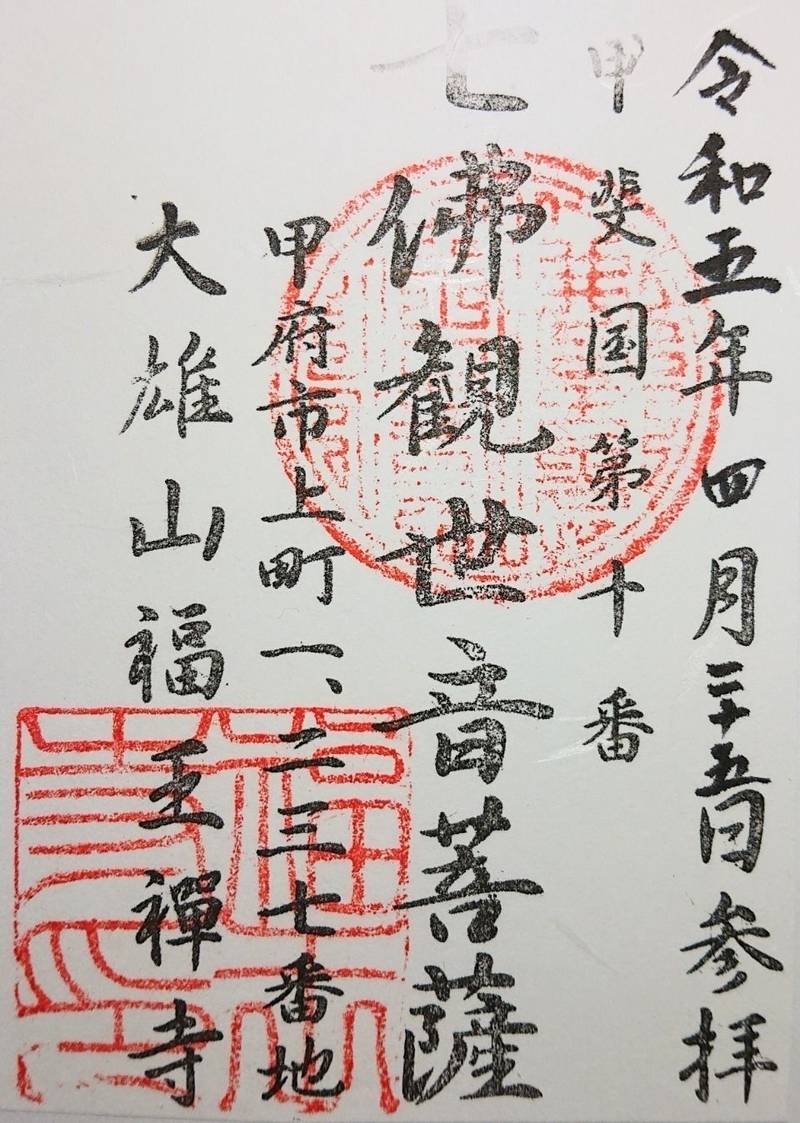 令和五年四月二十五日参拝
甲斐国第十番
七佛観世音菩薩
甲府市上町一、二三七番地
大雄山福王禅寺